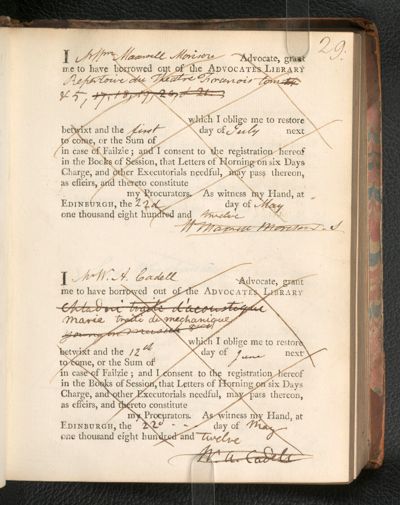 29.
I Wm Maxwell Morison Advocate, grant
me to have borrowed out of the ADVOCATES LIBRARY
Repertoire du Theatre Francois tom
& 5, 17, 18, 19, 20, & 21
which I oblige me to restore
betwixt and the first day of July next
to come, or the Sum of
in case of Failzie; and I consent to the registration hereof
in the Books of Session, that Letters of Horning on six Days
Charge, and other Executorials needful, may pass thereon,
as effeirs, and thereto constitute
my Procurators. As witness my Hand, at
EDINBURGH, the 22d day of May
one thousand eight hundred and twelve
W Maxwell Morison
I Mr W. A. Cadell Advocate, grant
me to have borrowed out of the ADVOCATES LIBRARY
Chladni traité d'acoustique
Marie traité de mechanique
which I oblige me to restore
betwixt and the 12th day of June next
to come, or the Sum of
in case of Failzie; and I consent to the registration hereof
in the Books of Session, that Letters of Horning on six Days
Charge, and other Executorials needful, may pass thereon,
as effeirs, and thereto constitute
my Procurators. As witness my Hand, at
EDINBURGH, the 22d day of May
one thousand eight hundred and twelve
W. A. Cadell